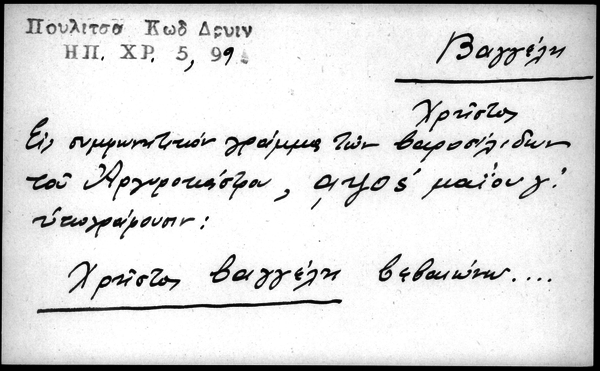 Πουλιτσα Κωδ Δρυιν
ΗΠ. ΧΡ. 5, 99.
Βαγγέλη
Χρῆστος
Εἰς συμφωνητικὸν γράμμα τῶν βαροσιλιδων
τοῦ Ἀργυροκάστρου, αψος΄ μαΐου γ΄.
ὑπογράφουσιν:
Χρῆστος βαγγέλη βεβαιώνω....